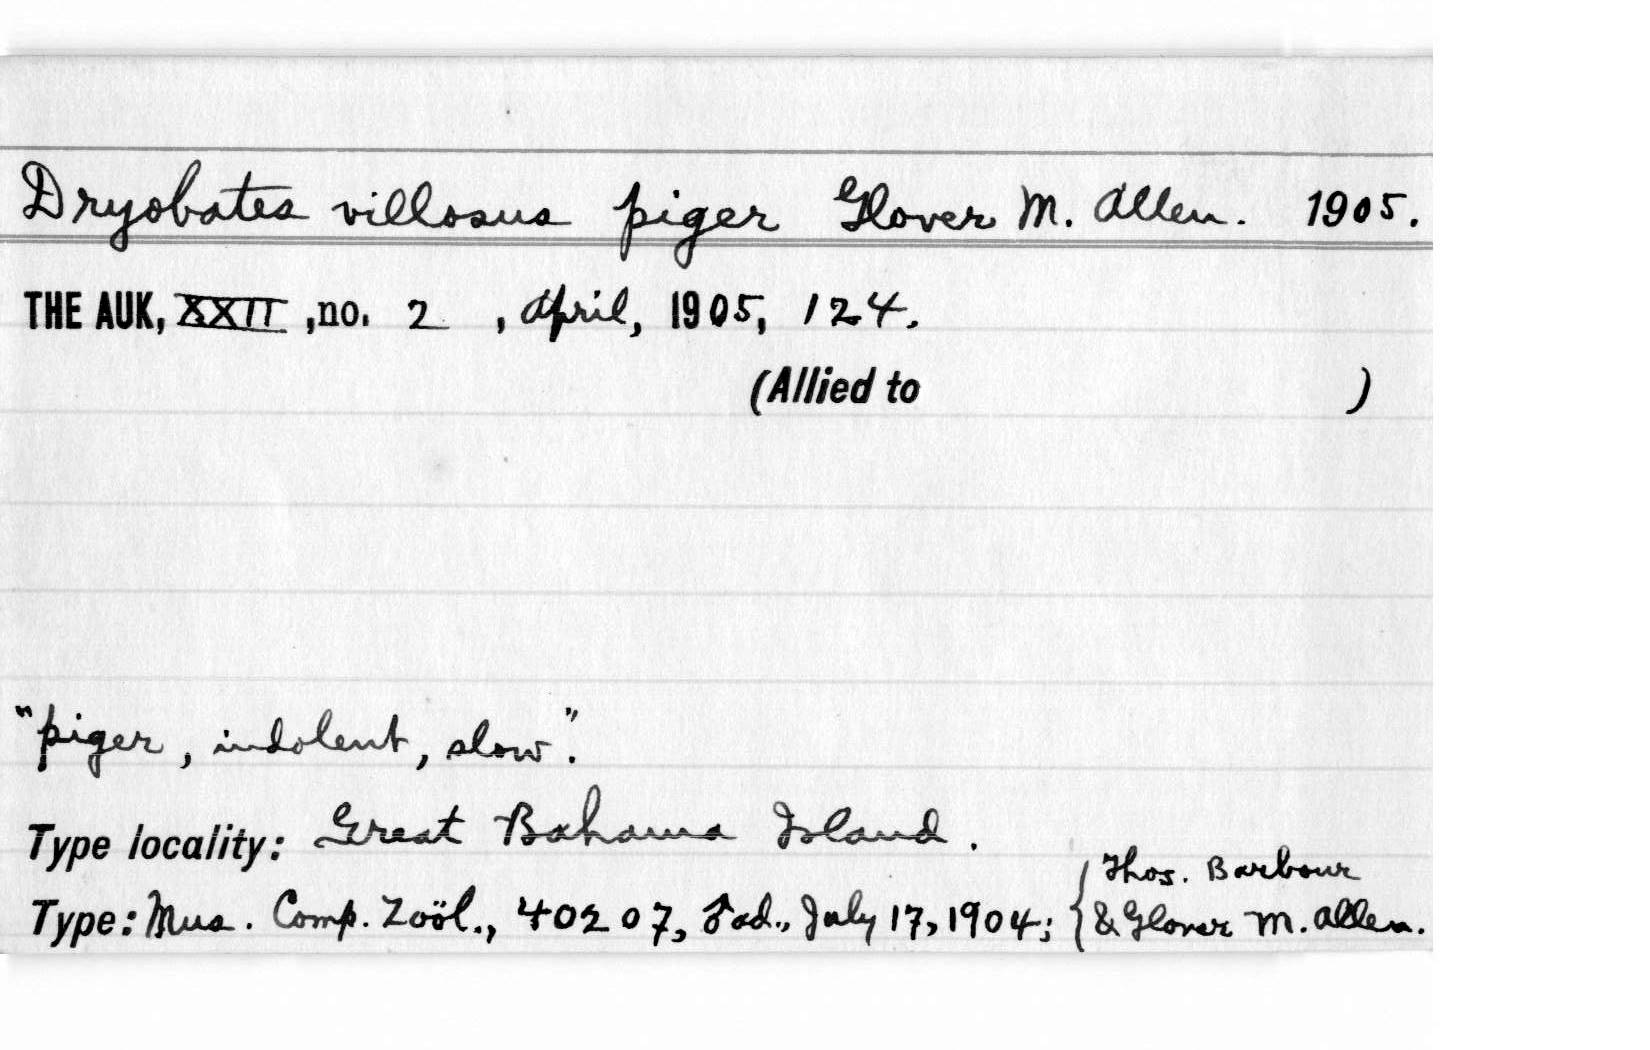 Dryobates villosus piger Glover M. Allen. 1905.
THE AUK, XXII, no. 2, April, 1905, 124.
(Allied to )
"piger, indolent, slow".
Type locality: Great Bahama Island.
Type: Mus. Comp. Zoöl., 40207, ♂ ad., July 17, 1904; { Thos. Barbour
& Glover M. Allen.